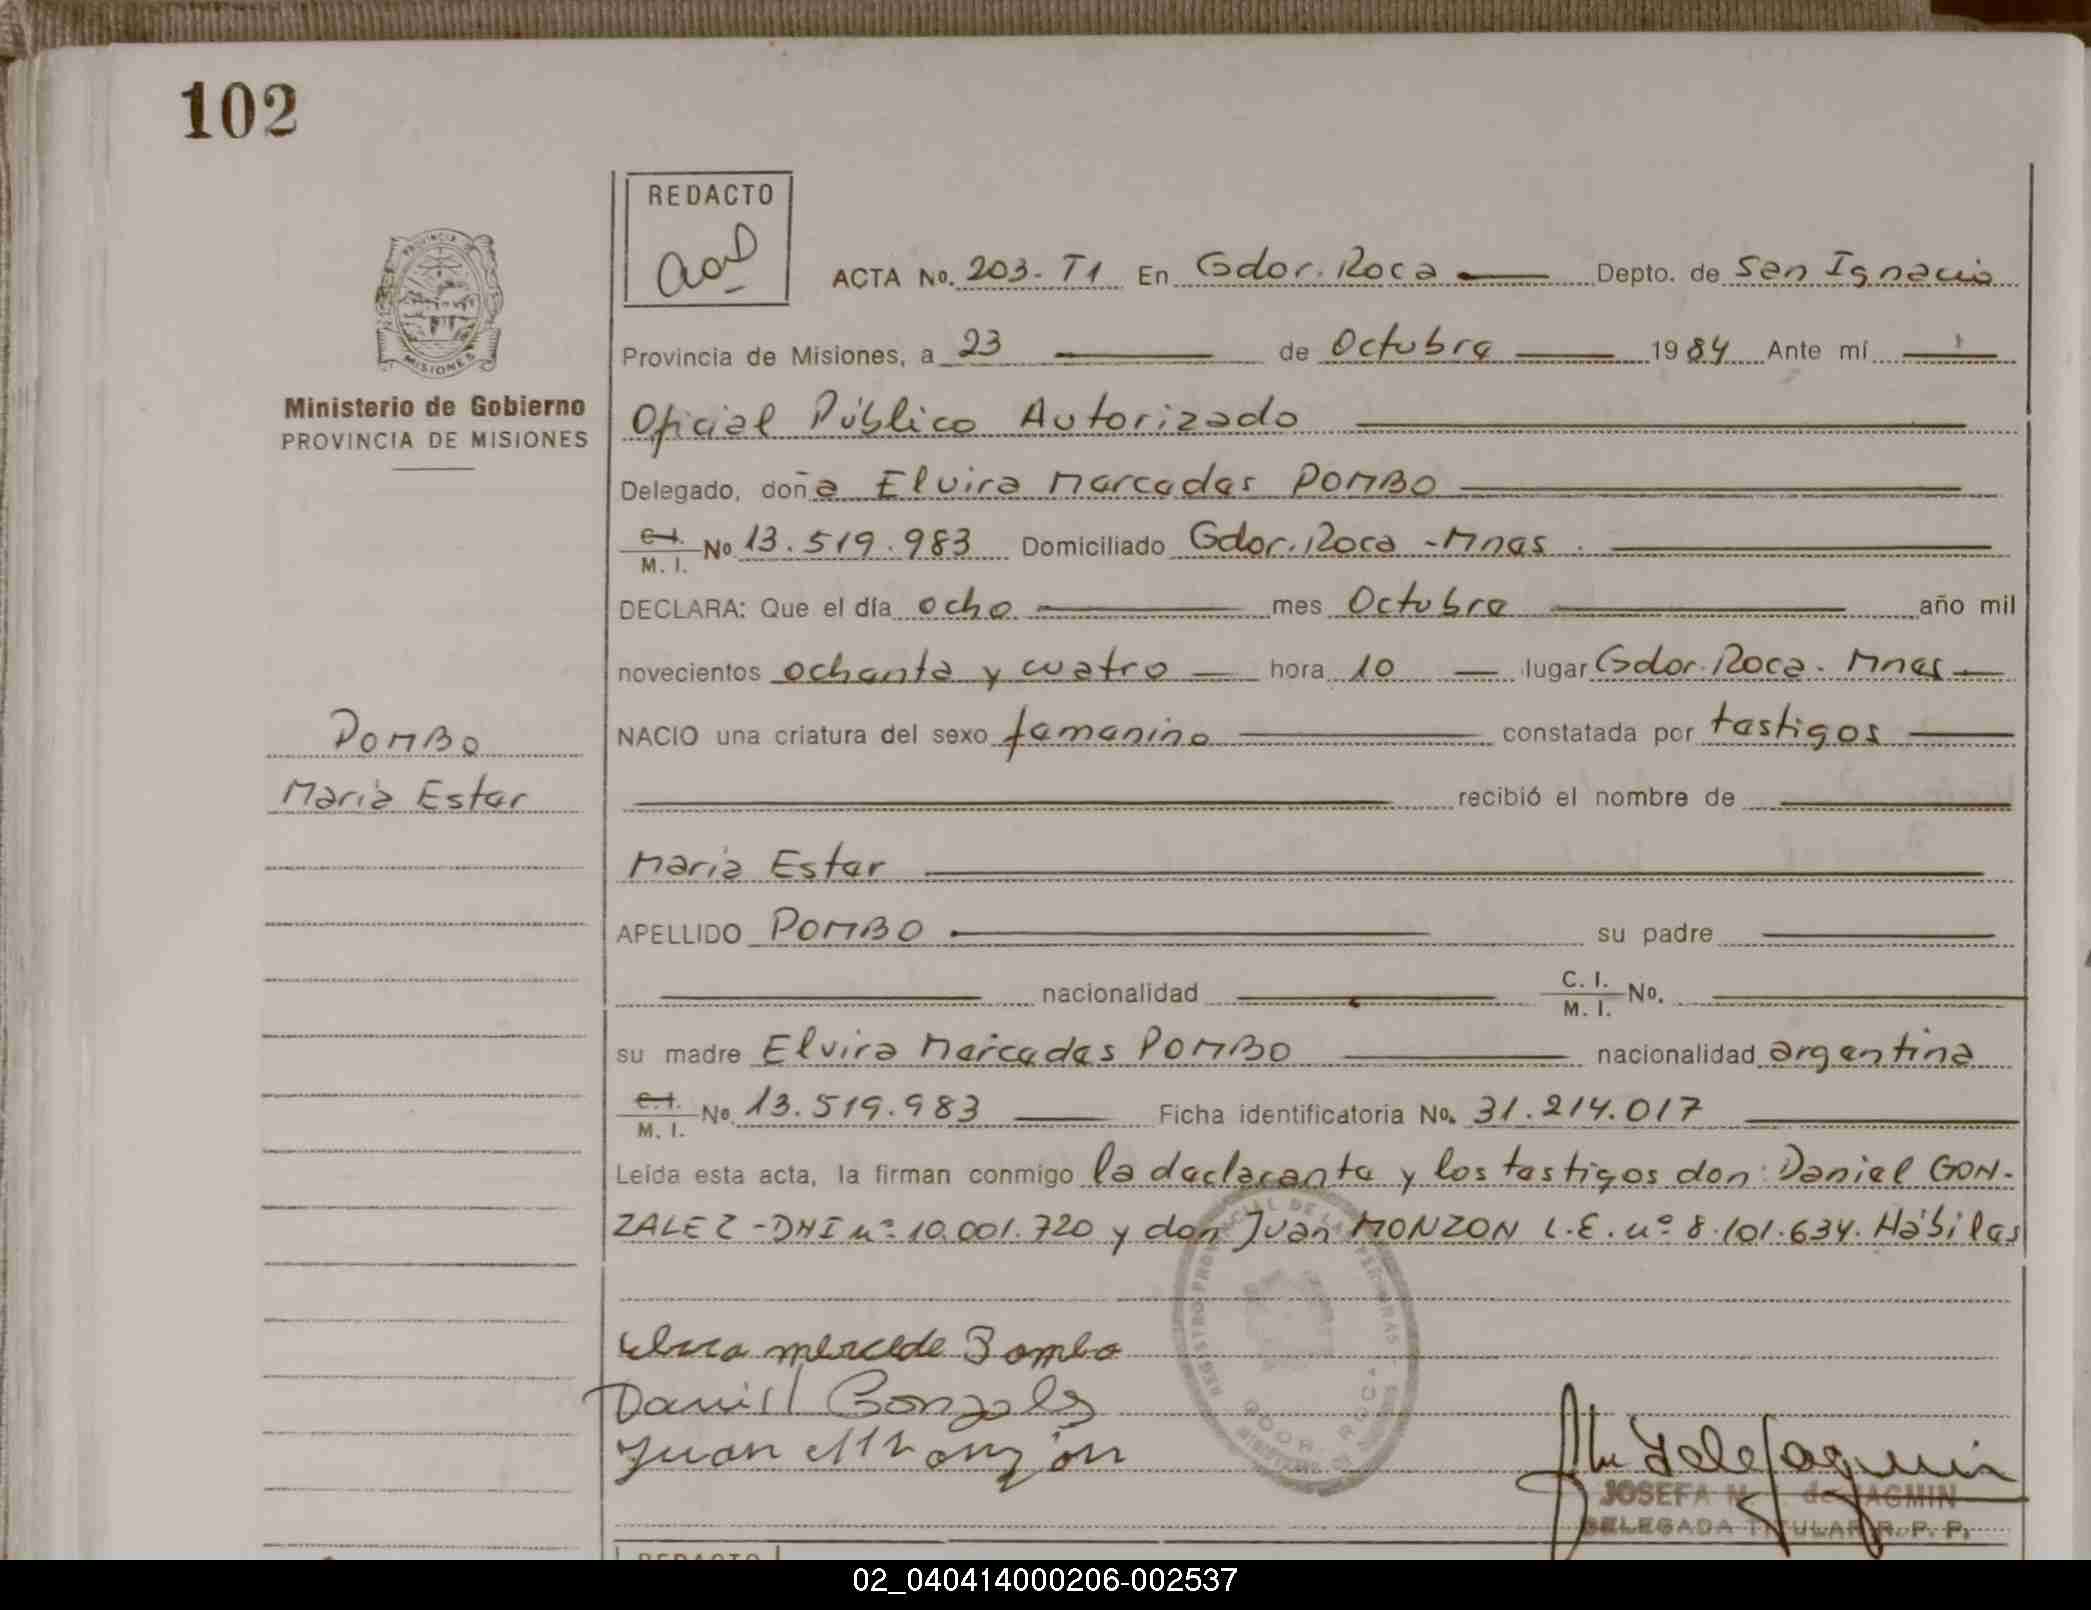 102
REDACTO
ACTA No. 203- T1 En Gdor. Roca Depto. de San Ignacio
PROVINCIA DE
MISIONES
Provincia de Misiones, a 23 de Octubre 1984 Ante mí
Ministerio de Gobierno
PROVINCIA DE MISIONES
Oficial Público Autorizado
Delegado, doña Elvira Mercedes POMBO
C.I. M. I. No 13.519.983 Domiciliado Gdor. Roca - Mnes
DECLARA: Que el día ocho mes Octubre año mil
novecientos ochenta y cuatro hora 10 lugar Gdor. Roca. Mnes
POMBO
NACIO una criatura del sexo femenino constatada por testigos
Maria Ester
recibió el nombre de
Maria Ester
APELLIDO POMBO su padre
nacionalidad C. I. M. I. No.
su madre Elvira Mercedes POMBO nacionalidad argentina
C.I. M. I. No. 13.519.983 Ficha identificatoria No. 31.214.017
Leída esta acta, la firman conmigo la declarante y los testigos don: Daniel GON-
ZALEZ - DNI nº 10.001.720 y don Juan MONZON L.E. nº 8.101.634. Hábiles
REGISTRO PROVINCIAL DE LAS PERSONAS
GDOR. ROCA
Elvira mercede Pombo
Daniel Gonzales
Juan Monzón
JOSEFA M. de JAGMIN
DELEGADA TITULAR R. P. P.
REDACTO
02_040414000206-002537